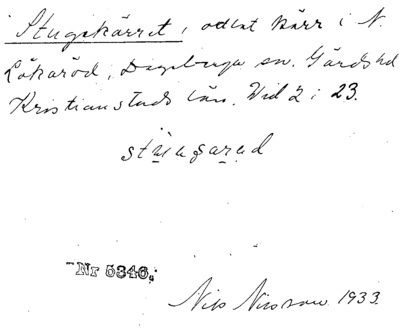 Stugekärret, odlat kärr i N.
Lökaröd, Degeberga sn. Gärds hd
Kristianstads län. Vid 2 i 23.
Nr 5346.
Nils Nilsson 1933.